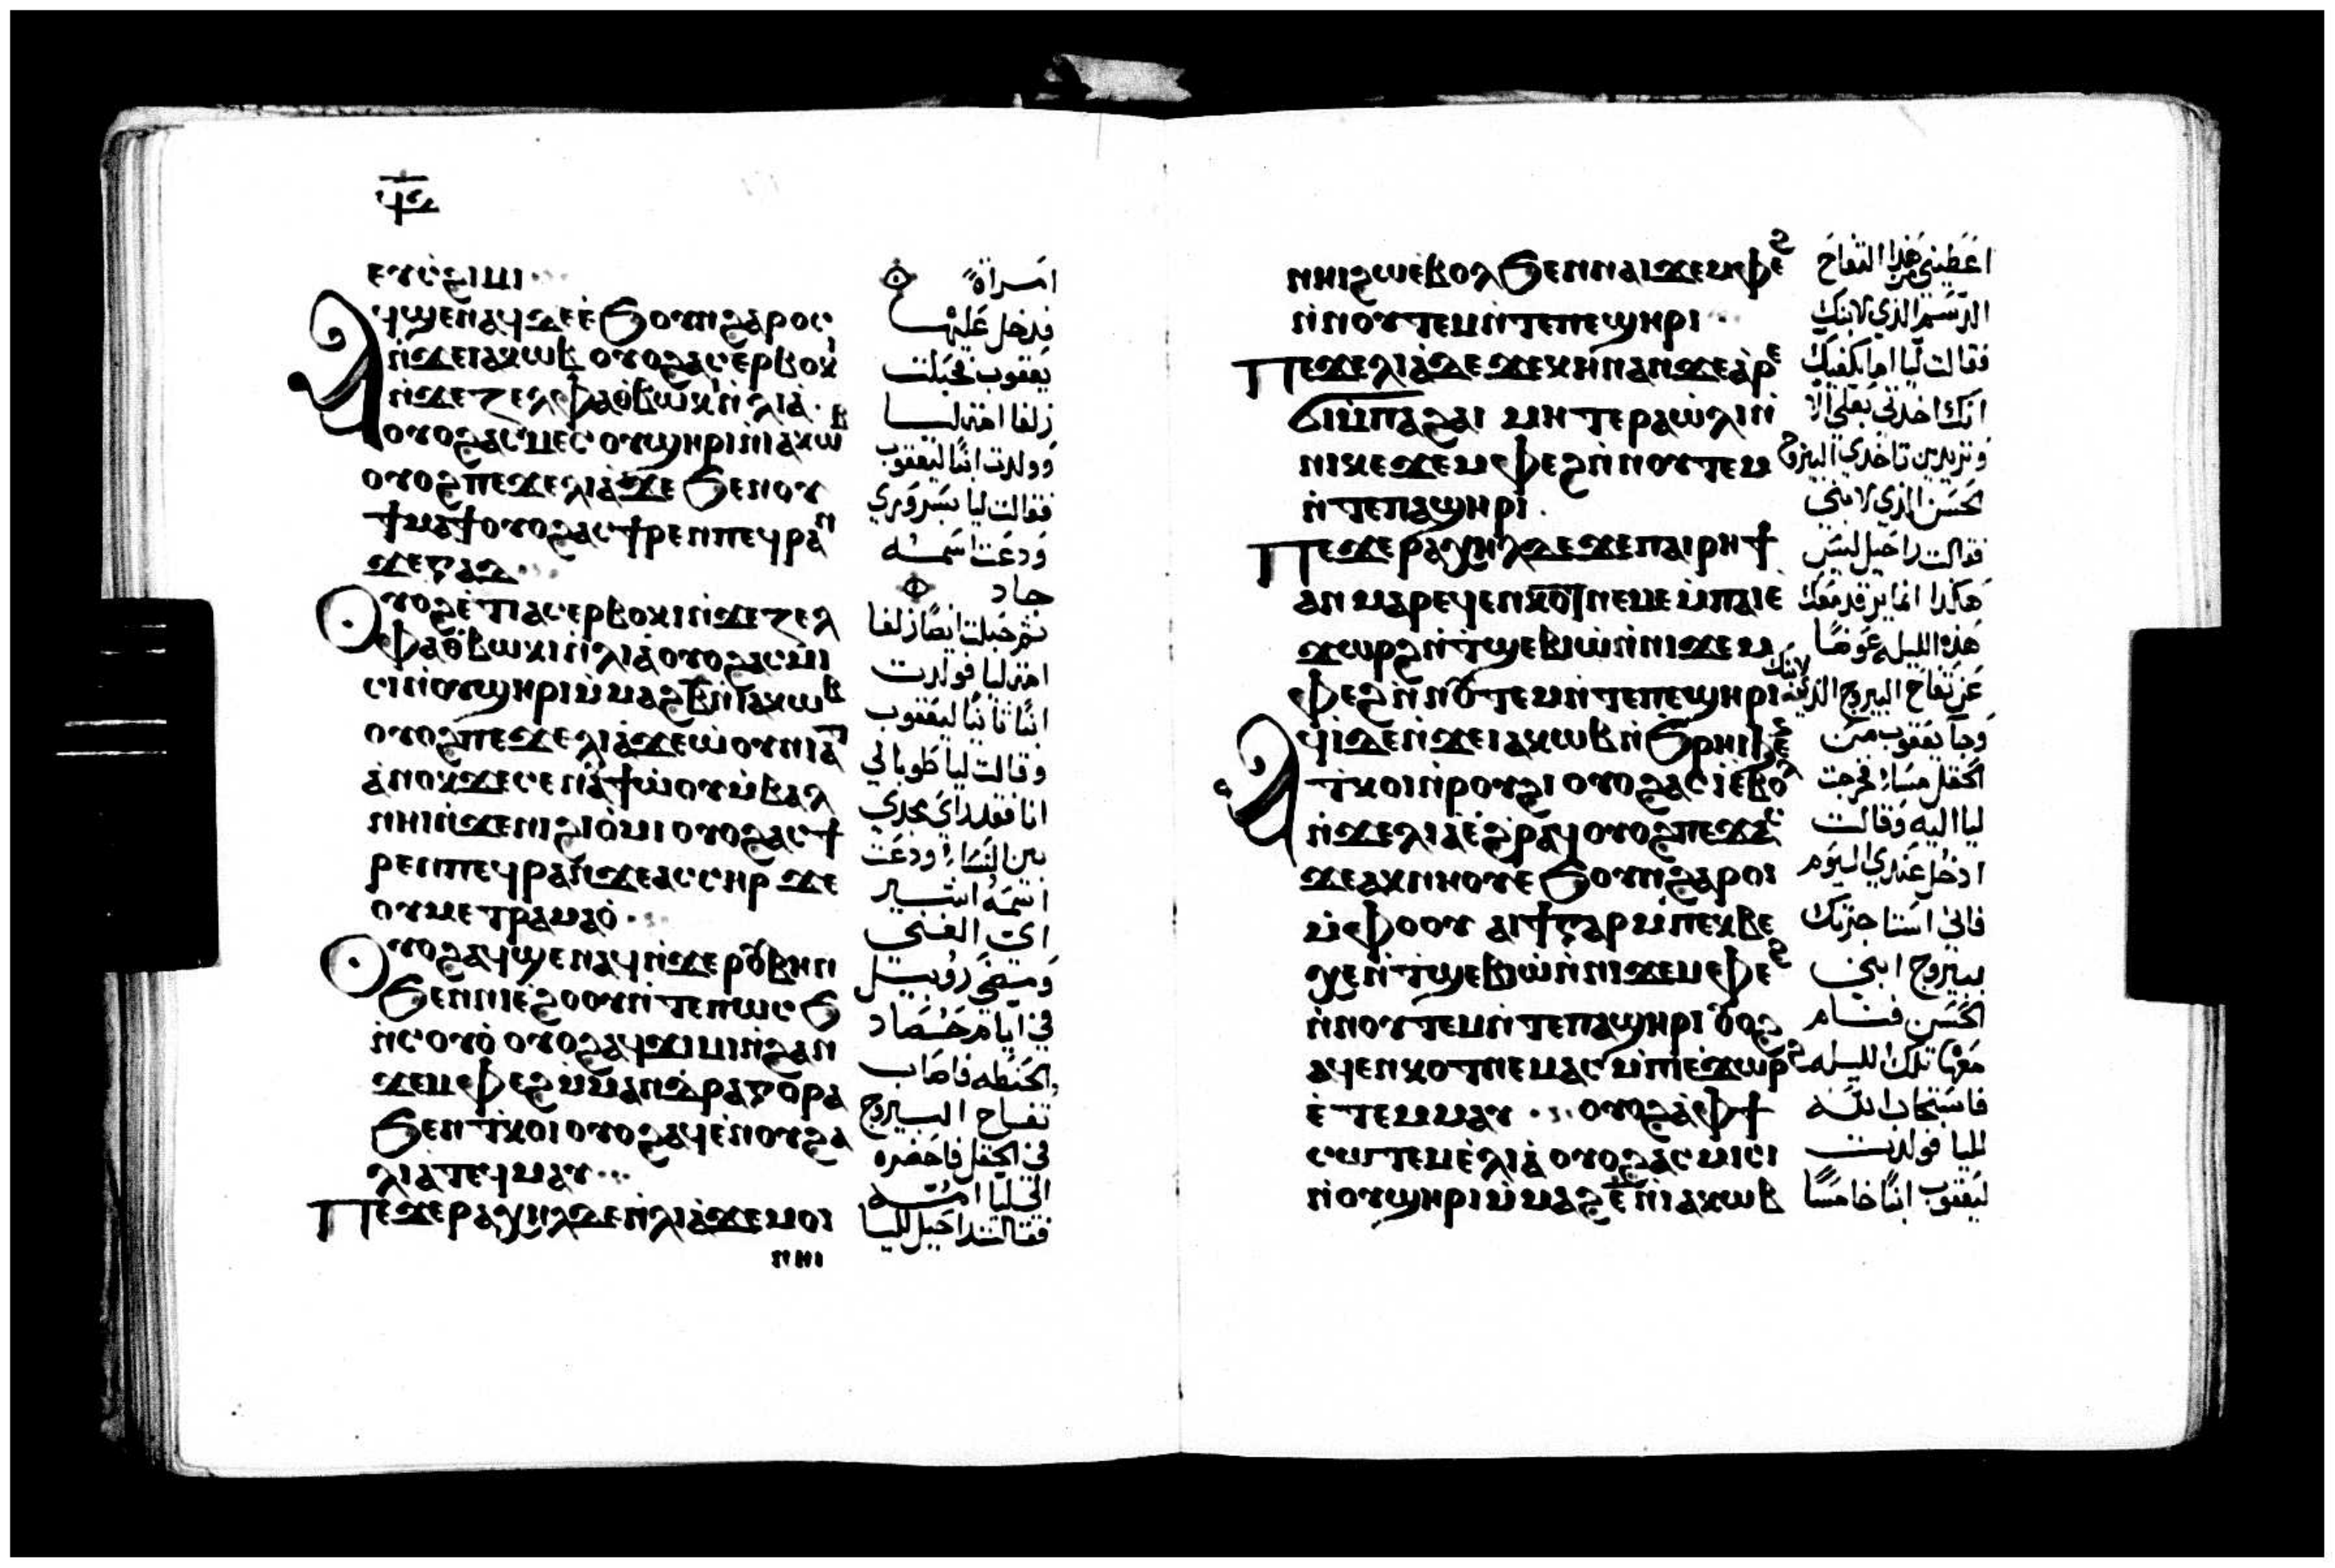 ⲉⲩⲥϩⲓⲙⲓ
ⲁϥϣⲉⲛⲁϥϫⲉ ⲉ̀ϧⲟⲩⲛ ϩⲁⲣⲟⲥ
ⲛ̀ϫⲉⲓⲁⲕⲱⲃ ⲟⲩⲟϩ ⲁⲥⲉⲣⲃⲟⲕⲓ
ⲛ̀ϫⲉⲍⲉⲗⲫⲁ ⲑ̀ⲃⲱⲕⲓ ⲛ̀ⲗⲓⲁ̀
ⲟⲩⲟϩ ⲁⲥⲙⲉⲥ ⲟⲩϣⲏⲣⲓ ⲛ̀ⲓⲁⲕⲱⲃ
ⲟⲩⲟϩ ⲡⲉϫⲉⲗⲓⲁ̀ ϫⲉ ϧⲉⲛⲟⲩ
ϯⲙⲁϯ ⲟⲩⲟϩ ⲁⲥϯⲣⲉⲛ ⲡⲉϥⲣⲁⲛ
ϫⲉⲅⲁⲇ
ⲟⲩⲟϩ ⲉ̀ⲧⲓ ⲁⲥⲉⲣⲃⲟⲕⲓ ⲛ̀ϫⲉⲍⲉⲗ
ⲫⲁ ⲑ̀ⲃⲱⲕⲓ ⲛ̀ⲗⲓⲁ̀ ⲟⲩⲟϩ ⲁⲥⲙⲓ
ⲥⲓ ⲛ̀ⲟⲩϣⲏⲣⲓ ⲙ̀ⲙⲁϩⲃ̅ ⲛ̀ⲓⲁⲕⲱⲃ
ⲟⲩⲟϩ ⲡⲉϫⲉⲗⲓⲁ̀ ϫⲉ ⲱ̀ⲟⲩⲛⲓⲁⲧ
ⲁ̀ⲛⲟⲕ ϫⲉ ⲥⲉⲛⲁϯⲱ̀ⲟⲩ ⲙ̀ⲃⲁⲗ
ⲛⲏⲓ ⲛ̀ϫⲉⲛⲓϩⲓⲟ̀ⲙⲓ ⲟⲩⲟϩ ⲁⲥϯ
ⲣⲉⲛ ⲡⲉϥⲣⲁⲛ ϫⲉⲁⲥⲥⲏⲣ ϫⲉ
ⲟⲩⲙⲉⲧⲣⲁⲙⲁⲟ̀
ⲟⲩⲟϩ ⲁϥϣⲉⲛⲁϥ ⲛ̀ϫⲉⲣⲟⲩⲃⲏⲛ
ϧⲉⲛⲛⲓⲉ̀ϩⲟⲟⲩ ⲛ̀ⲧⲉⲡⲱⲥϧ
ⲛ̀ⲥⲟⲩⲟ̀ ⲟⲩⲟϩ ⲁϥϫⲓⲙⲓ ⲛ̀ϩⲁⲛ
ϫⲉⲙⲫⲉϩ ⲙ̀ⲙⲁⲛⲇⲣⲁⲅⲟⲣⲁ
ϧⲉⲛ ⲧ̀ⲕⲟⲓ ⲟⲩⲟϩ ⲁϥⲉ̀ⲛⲟⲩ ϩⲁ
ⲗⲓⲁ ⲧⲉϥⲙⲁⲩ
ⲡⲉϫⲉⲣⲁⲭⲏⲗ ⲇⲉ ⲛ̀ⲗⲓⲁ̀ ϫⲉ ⲙⲟⲓ
ⲛⲏⲓ
امراة
فدخل عليها
يعقوب فحبلت
زلفا امة ليا
وولدت ابنا ليعقوب
فقالت ليا
ودعت اسمه
جاد
ثم حبلت ايضا زلفا
امة ليا فولدت
ابنا ثانيا ليعقوب
وقالت ليا طوباي لي
انا
بين النساء ودعت
اسمه اشير
اي الغني
ومضى روبيل
في ايام حصاد
الحنطه فاصاب
تفاح اليبروج
في الحقل فاحضره
الى ليا امه
فقالت راحيل لليا
ⲛⲏⲓϩⲱ ⲉ̀ⲃⲟⲗ ϧⲉⲛⲛⲁⲓϫⲉⲙⲫⲉϩ
ⲛ̀ⲛⲟⲩⲧⲉⲙ ⲛ̀ⲧⲉⲡⲉϣⲏⲣⲓ
ⲡⲉϫⲉⲗⲓⲁ̀ ⲇⲉ ϫⲉ ⲕⲏⲛ ⲁⲛ ϫⲉ ⲁ̀ⲣⲉ
ϭⲓ ⲙ̀ⲡⲁϩⲁⲓ ⲙⲏ ⲧⲉⲣⲁⲱ̀ⲗⲓ ⲛ̀
ⲛⲓⲕⲉϫⲉⲙⲫⲉϩ ⲛ̀ⲛⲟⲩⲧⲉⲙ
ⲛ̀ⲧⲉⲡⲁϣⲏⲣⲓ
ⲡⲉϫⲉⲣⲁⲭⲏⲗ ⲇⲉ ϫⲉ ⲡⲁⲓⲣⲏϯ
ⲁⲛ ⲙⲁⲣⲉϥⲉⲛⲕⲟⲧ ⲛⲉⲙⲉ ⲙ̀ⲡⲁⲓⲉ̀
ϫⲱⲣϩ ⲛ̀ⲧ̀ϣⲉⲃⲓⲱ̀ ⲛ̀ⲛⲓϫⲉⲙ
ⲫⲉϩ ⲛ̀ⲛⲟⲩⲧⲉⲙ ⲛ̀ⲧⲉⲡⲉϣⲏⲣⲓ
ⲁϥⲓ̀ ⲇⲉ ⲛ̀ϫⲉⲓⲁⲕⲱⲃ ⲛ̀ϧⲣⲏⲓ ϧⲉⲛ
ⲧ̀ⲕⲟⲓ ⲛ̀ⲣⲟⲩϩⲓ ⲟⲩⲟϩ ⲁⲥⲓ̀ ⲉ̀ⲃⲟⲗ
ⲛ̀ϫⲉⲗⲓⲁ̀ ⲉ̀ϩ̀ⲣⲁϥ ⲟⲩⲟϩ ⲡⲉϫⲁⲥ
ϫⲉ ⲁⲕⲛⲏⲟⲩ ⲉ̀ϧⲟⲩⲛ ϩⲁⲣⲟⲓ
ⲙ̀ⲫⲟⲟⲩ ⲁⲓϯ ⲅⲁⲣ ⲙ̀ⲡⲉⲕⲃⲉ
ⲭⲉ ⲛ̀ⲧ̀ϣⲉⲃⲓⲱ̀ ⲛ̀ⲛⲓϫⲉⲙⲫⲉϩ
ⲛ̀ⲛⲟⲩⲧⲉⲙ ⲛ̀ⲧⲉⲡⲁϣⲏⲣⲓ ⲟⲩⲟϩ
ⲁϥⲉⲛⲕⲟⲧ ⲛⲉⲙⲁⲥ ⲙ̀ⲡⲓⲉ̀ϫⲱⲣϩ
ⲉ̀ⲧⲉⲙⲙⲁⲩ ⲟⲩⲟϩ ⲁ̀ⲫϯ
ⲥⲱⲧⲉⲙ ⲉ̀ⲗⲓⲁ̀ ⲟⲩⲟϩ ⲁⲥⲙⲓⲥⲓ
ⲛ̀ⲟⲩϣⲏⲣⲓ ⲙ̀ⲙⲁϩⲉ̅ ⲛ̀ⲓⲁⲕⲱⲃ
اعطيني من هذا التفاح
الدسم الذي لابنك
فقالت ليا اما يكفيك
انك اخذتي بعلي الا
وتريدين تاخذي اليبروج
الحسن الذي لابني
فقالت راحيل ليس
هكذا انما يرقد معك
هذه الليلة عوضا
عن تفاح اليبروج الذي لابنك
وجا يعقوب من
الحقل مساء فخرجت
ليا اليه وقالت
ادخل عندي اليوم
فاني استاجرتك
بيبروج ابني
الحسن فنام
معها تلك الليله
فاستجاب الله
لليا فولدت
ليعقوب ابنا خامسا